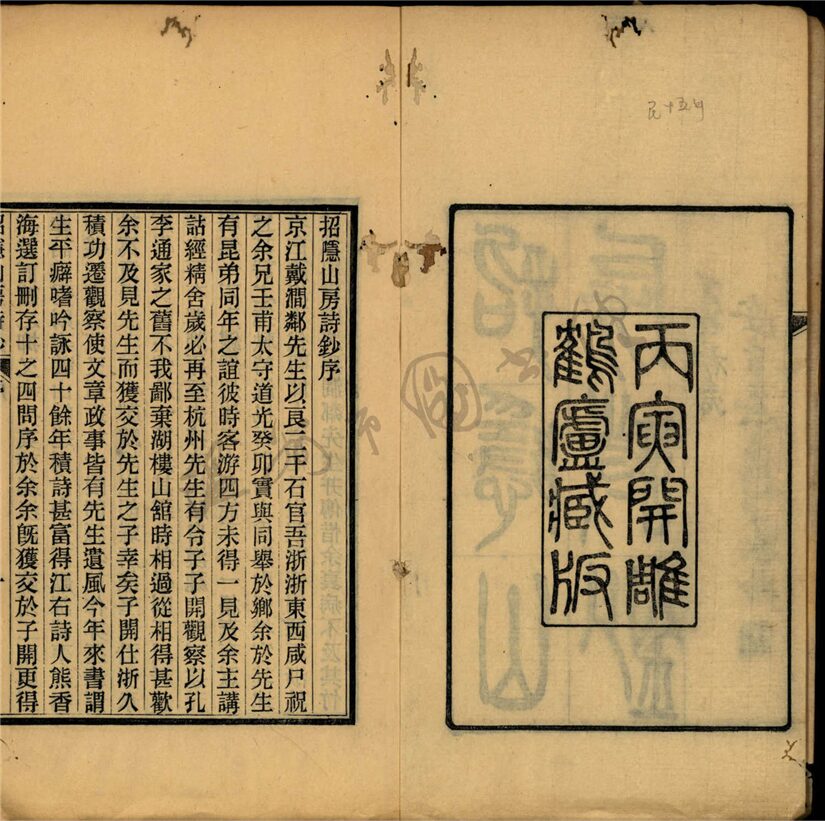 丙寅開雕
鶴廬藏版
招隱山房詩鈔序
京江戴澗鄰先生以良二千石官吾浙浙東西咸尸祝
之余兄壬甫太守道光癸卯實與同舉於鄉余於先生
有昆弟同年之誼彼時客游四方未得一見及余主講
詁經精舍歲必再至杭州先生有令子子開觀察以孔
李通家之舊不我鄙棄湖樓山舘時相過從相得甚歡
余不及見先生而獲交於先生之子幸矣子開仕浙久
積功遷觀察使文章政事皆有先生遺風今年來書謂
生平癖嗜吟詠四十餘年積詩甚富得江右詩人熊香
海選訂刪存十之四問序於余余旣獲交於子開更得